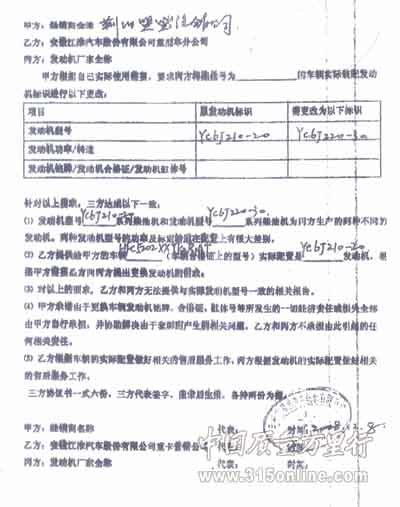 甲方：经销商全称
乙方：安徽江淮汽车股份有限公司重型车分公司
丙方：发动机厂家全称
甲方根据自己实际使用需要，要求丙方将底盘号为 的车辆实际装配发动
机标识进行以下更改：
项目 原发动机标识 需更改为以下标识
发动机型号 YC6J210-20 YC6J220-30
发动机功率/转速
发动机铭牌/发动机合格证/发动机缸体号
针对以上要求，三方达成以下一致：
(1) 发动机型号YC6J210-20系列柴油机和发动机型号YC6J220-30系列柴油机为丙方生产的两种不同的
发动机。两种发动机型号的功率及标定转速在配置上有很大差别。
(2) 乙方提供给甲方的车辆 （车辆合格证上的型号）实际配置是YC6J210-20发动机，根
据甲方需要乙方向丙方提出更换发动机的要求。
(3) 对以上的要求，乙方和丙方无法提供与实际发动机型号一致的相关报告。
(4) 甲方承诺由于更换车辆发动机铭牌、合格证、缸体号等所发生的一切经济责任或损失全部
由甲方自行承担，并协助解决由于索赔而产生的相关问题，乙方和丙方不承担由此引起的任
何相关责任。
(5) 乙方根据车辆的实际配置做好相关的售后服务工作，丙方根据发动机的实际配置做好相关
的售后服务工作。
三方协议书一式六份，三方代表签字、盖章后生效，各持两份为据。
甲方：经销商名称 代表： 时间：2008.12.8
乙方：安徽江淮汽车股份有限公司重卡营销公司 代表： 时间：
丙方：发动机厂家全称 代表： 时间：
中国质量万里行
www.315online.com